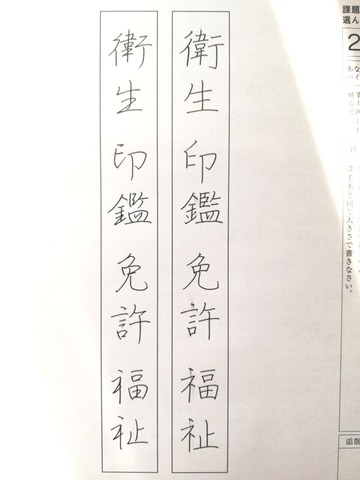 課題
選ん
2
同じ大きさで書きなさい。
衛生 印鑑 免許 福祉
衛生 印鑑 免許 福祉
添削